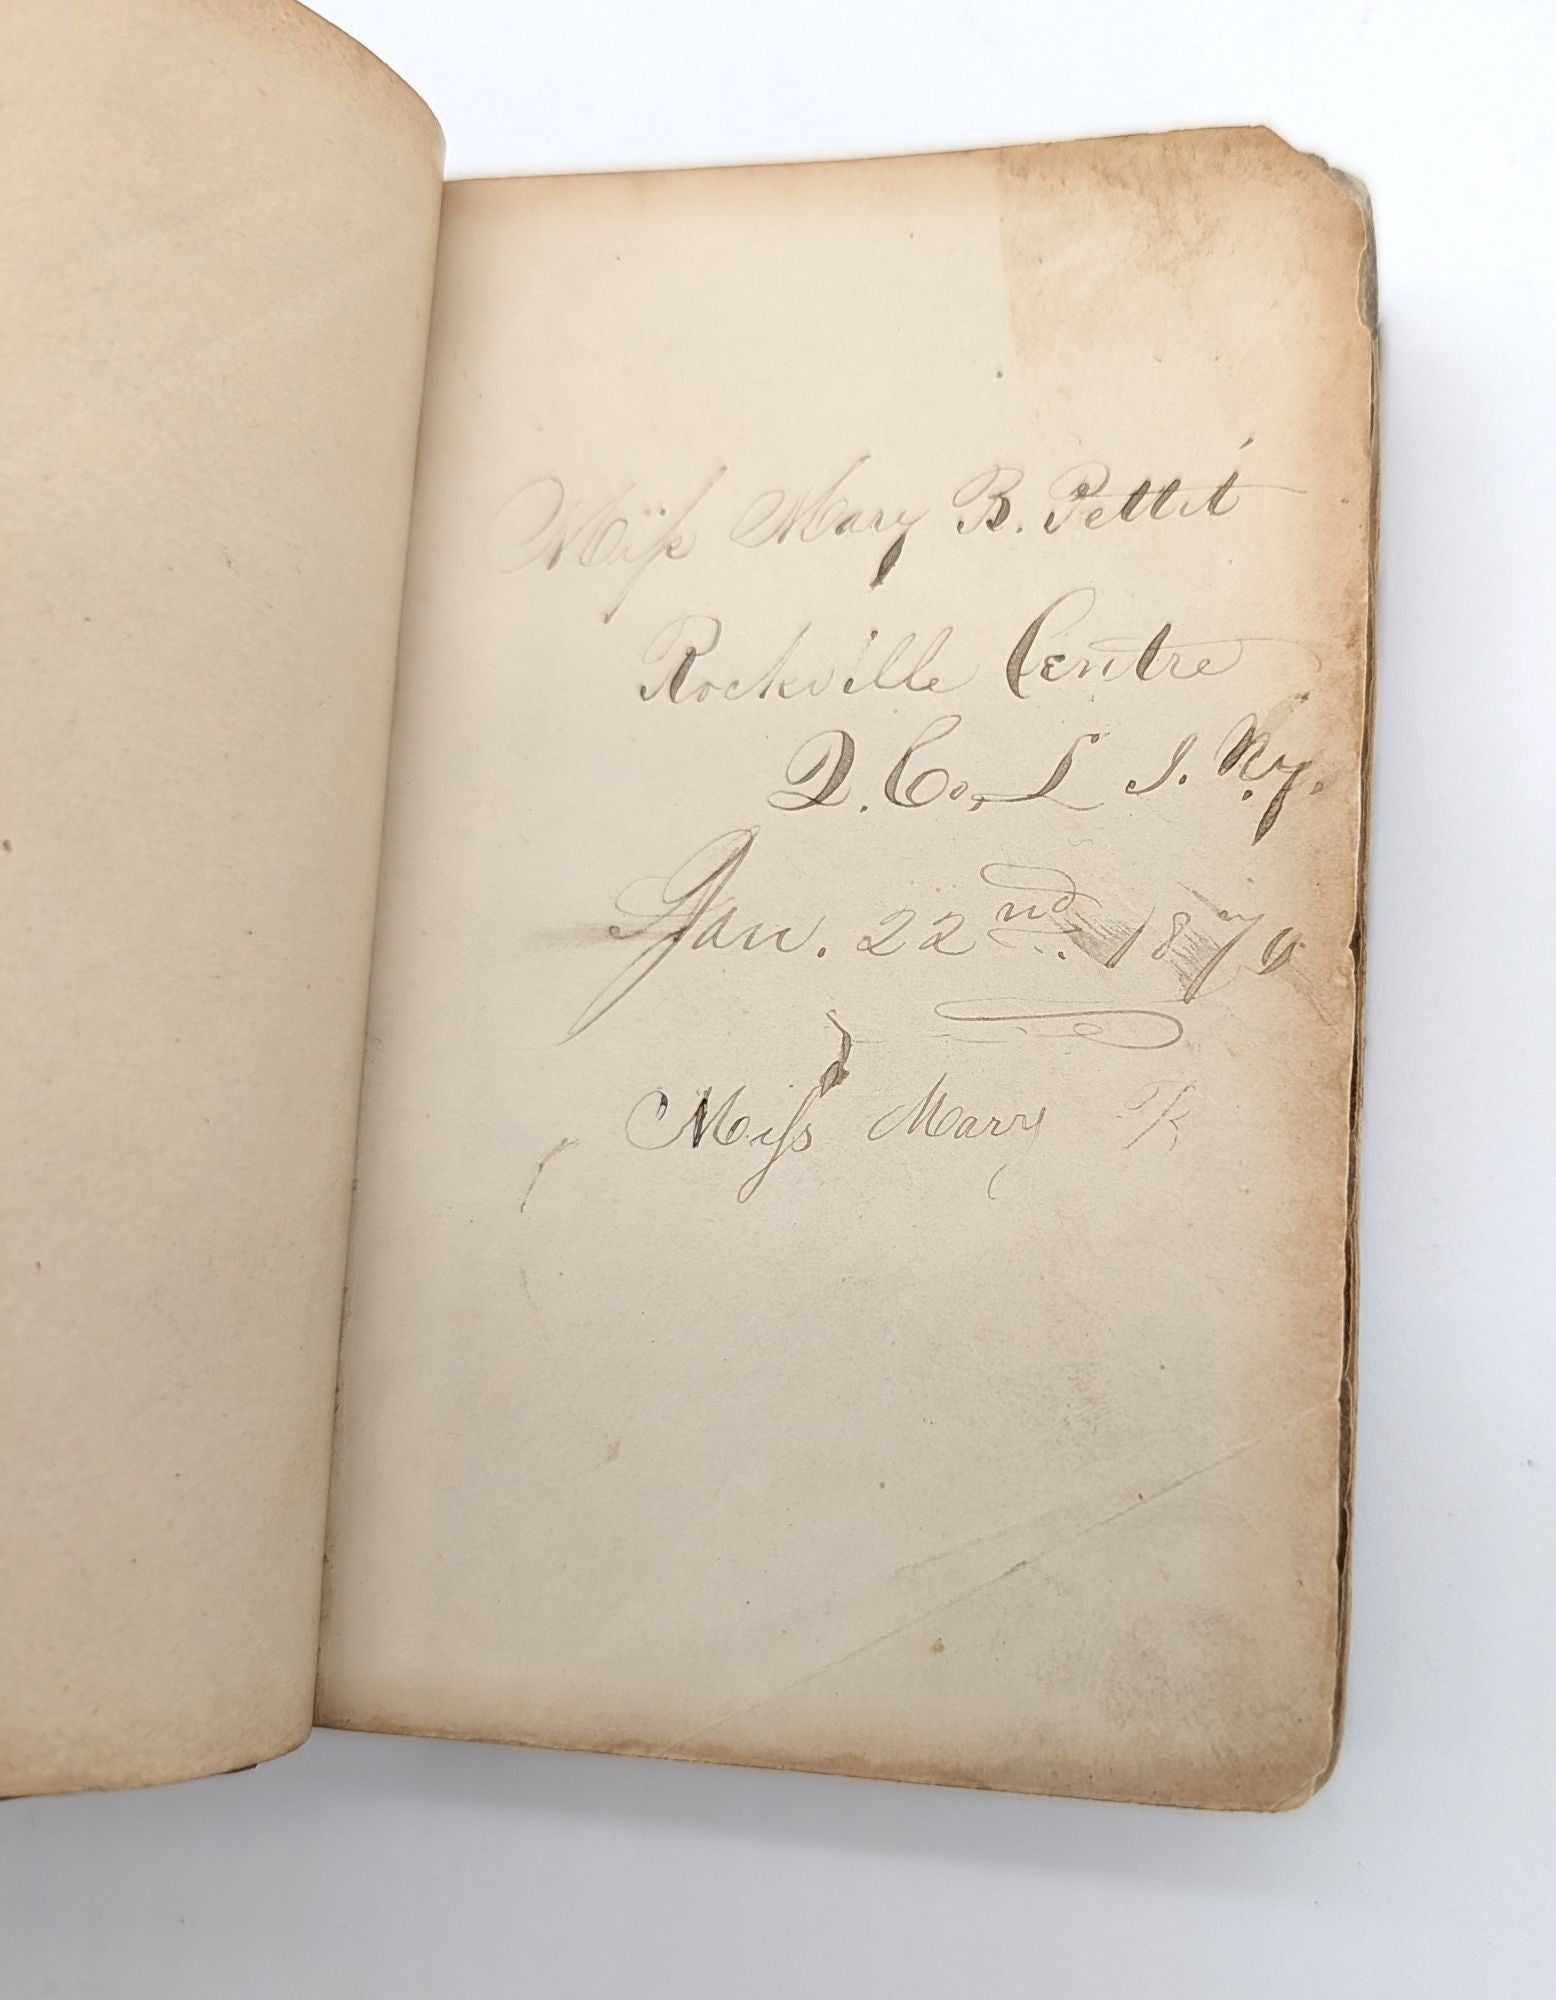 Miſs Mary B. Pettit
Rockville Centre
Q. Co, L I. N.y.
Jan. 22nd. 1870
Miſs Mary